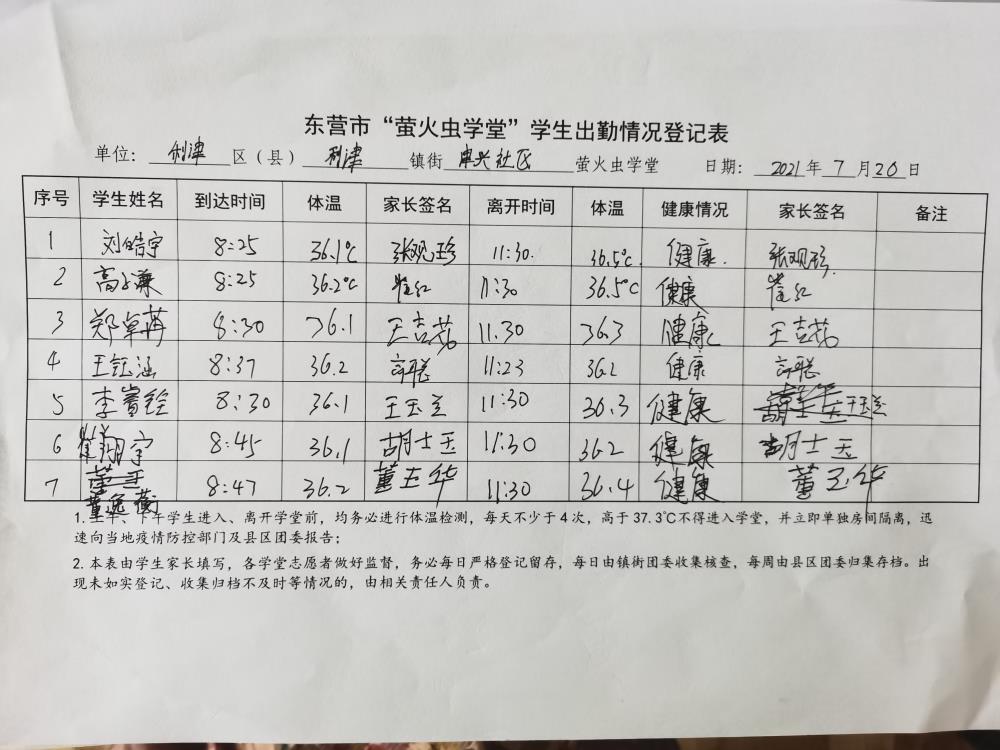 东营市“萤火虫学堂”学生出勤情况登记表
单位：利津区（县）利津镇街 社区萤火虫学堂 日期：2021年7月20日
序号 学生姓名 到达时间 体温 家长签名 离开时间 体温 健康情况 家长签名 备注
1 刘皓宇 8:25 36.1℃ 张观珍 11:30. 36.5℃. 健康. 张观珍
2 高子谦 8:25 36.2℃ 崔红 11:30 36.5℃ 健康 崔红
3 郑卓 8:30 36.1 王吉 11:30 36.3 健康 王吉
4 王钰涵 8:37 36.2 11:23 36.2 健康
5 李 8:30 36.1 王玉兰 11:30 36.3 健康 王玉兰
6 宇 8:45 36.1 胡士玉 11:30 36.2 健康 胡士玉
7 董逸蘅 8:47 36.2 董玉华 11:30 36.4 健康 董玉华
1.上午、下午学生进入、离开学堂前，均务必进行体温检测，每天不少于4次，高于37.3℃不得进入学堂，并立即单独房间隔离，迅
速向当地疫情防控部门及县区团委报告；
2.本表由学生家长填写，各学堂志愿者做好监督，务必每日严格登记留存，每日由镇街团委收集核查，每周由县区团委归集存档。出
现未如实登记、收集归档不及时等情况的，由相关责任人负责。